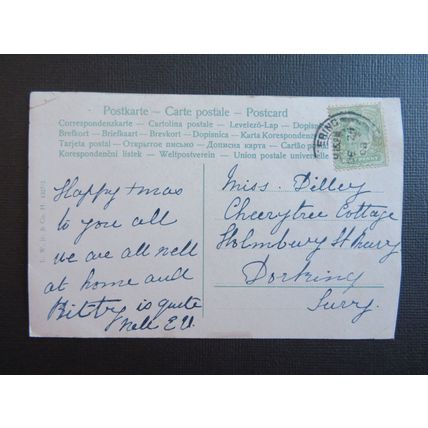 Postkarte – Carte postale – Postcard
Correspondenzkarte – Cartolina postale – Levelező-Lap – Dopisnice
Brefkort – Briefkaart – Brevkort – Dopisnica – Karta Korespondencyjna
Tarjeta postal – Открытое письмо – Дописна карта – Cartão postal
Korespondenční lístek – Weltpostverein – Union postale universelle
Happy xmas
to you all
we are all well
at home and
Kitty is quite
well E U.
Miss. Dilley
Cheerytree Cottage
Holmbury St Mary
Dorking
Surry.
ERING